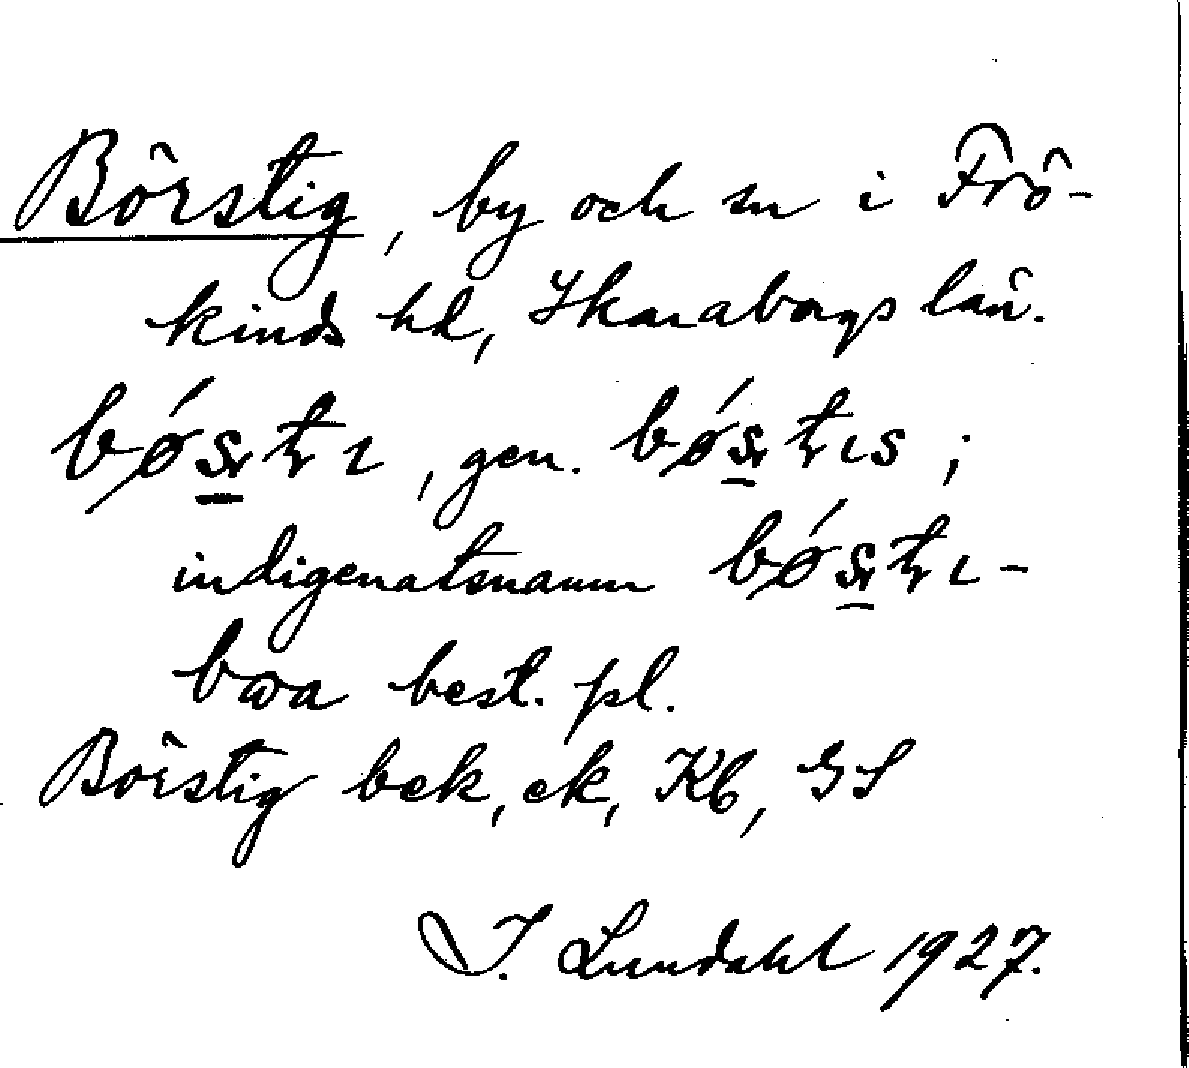 Börstig, by och sn i Frö-
kinds hd, Skaraborgs län.
bǿʂʈɩ, gen. bǿʂʈɩs;
indigenatsnamn bǿʂʈɩ-
bωa best. pl.
Börstig bek, ek, Kb, GS
I. Lundahl 1927.